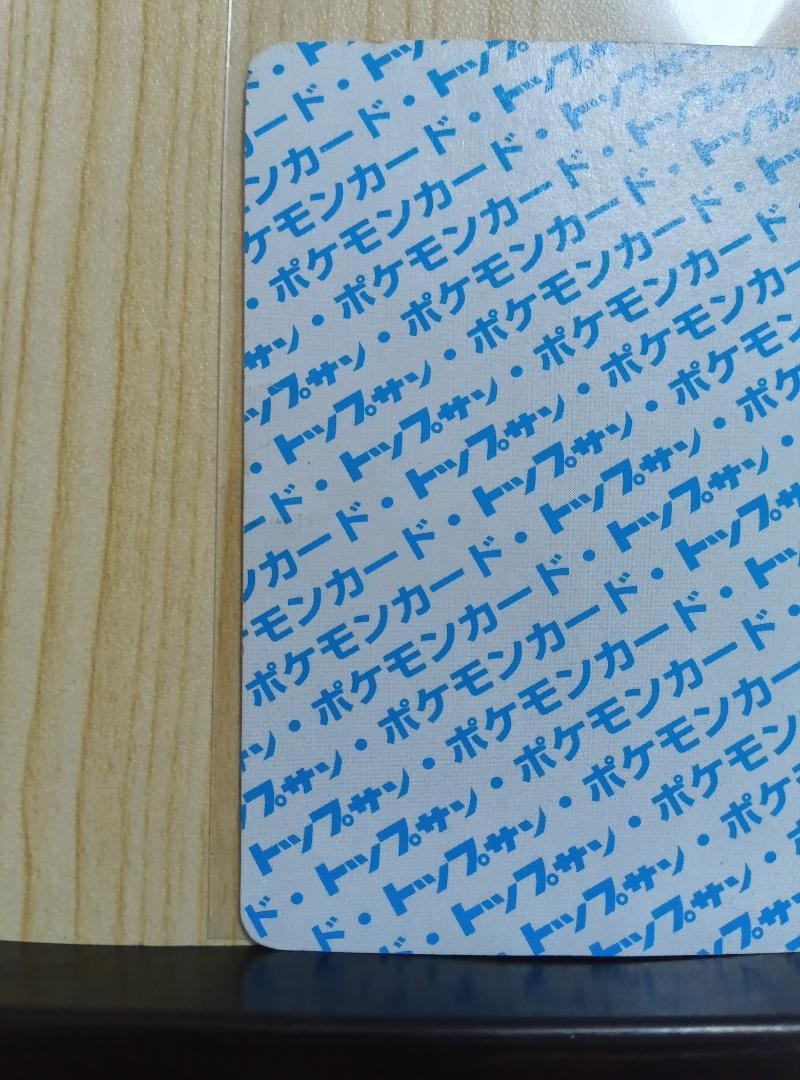 ・ト
ード・トッ
ンカード・トップ
ケモンカード・トップサ
・ポケモンカード・トップサン
サン・ポケモンカード・トップサン
ップサン・ポケモンカード・トップサ
・トップサン・ポケモンカード・ト
ード・トップサン・ポケモンカード・
ンカード・トップサン・ポケモンカー
ケモンカード・トップサン・ポケモン
ポケモンカード・トップサン・ポケ
サン・ポケモンカード・トップサン・
プサン・ポケモンカード・トップサ
トップサン・ポケモンカード・ト
ド・トップサン・ポケモンカード・
ド・トップサン・ポケモンカー
ド・トップサン・ポケモン
トップサン・ポケ
トップサン・
トップサ